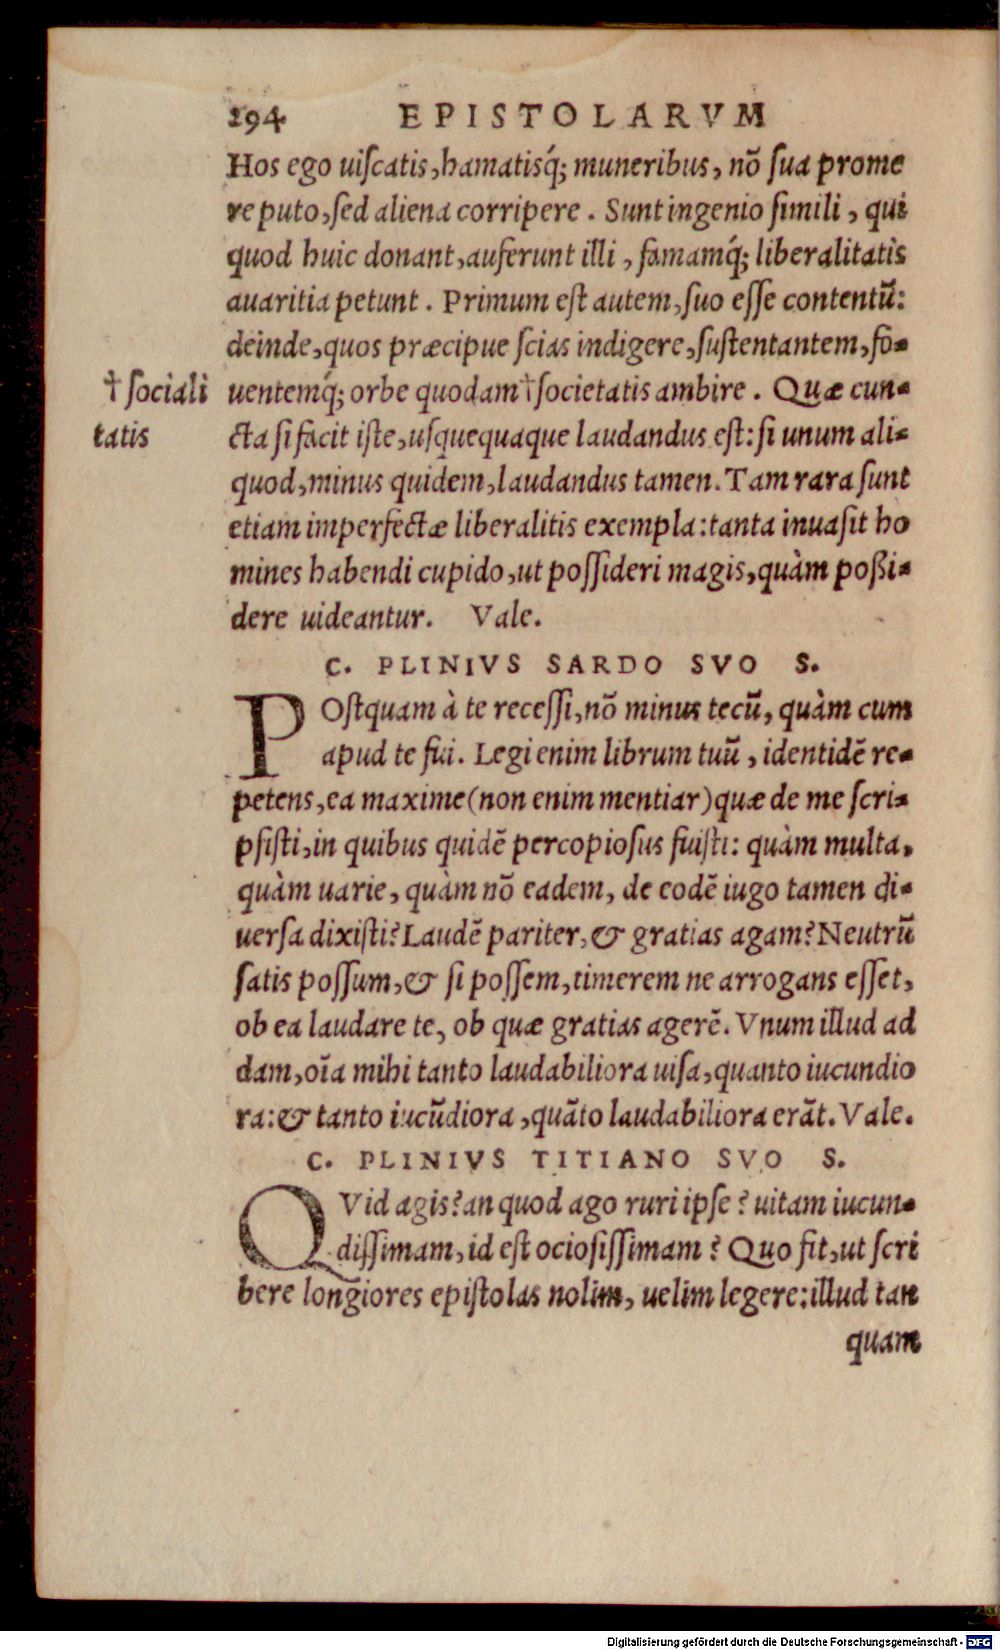 294 EPISTOLARVM
Hos ego uiſcatis, hamatisq́; muneribus, nō ſua prome
re puto, ſed aliena corripere. Sunt ingenio ſimili, qui
quod huic donant, auferunt illi, famamq́; liberalitatis
auaritia petunt. Primum eſt autem, ſuo eſſe contentū:
deinde, quos præcipue ſcias indigere, ſuſtentantem, fo-
† ſociali
tatis
uentemq́; orbe quodam † ſocietatis ambire. Quæ cun-
cta ſi facit iſte, uſquequaque laudandus eſt: ſi unum ali-
quod, minus quidem, laudandus tamen. Tam rara ſunt
etiam imperfectæ liberalitis exempla: tanta inuaſit ho
mines habendi cupido, ut poſſideri magis, quàm poßi-
dere uideantur. Vale.
C. PLINIVS SARDO SVO S.
POſtquam à te receſſi, nō minus tecū, quàm cum
apud te fui. Legi enim librum tuū, identidē re-
petens, ea maxime (non enim mentiar) quæ de me ſcri-
pſiſti, in quibus quidē percopioſus fuiſti: quàm multa,
quàm uarie, quàm nō eadem, de eodē iugo tamen di-
uerſa dixiſti? Laudē pariter, & gratias agam? Neutrū
ſatis poſſum, & ſi poſſem, timerem ne arrogans eſſet,
ob ea laudare te, ob quæ gratias agerē. Vnum illud ad
dam, oīa mihi tanto laudabiliora uiſa, quanto iucundio
ra: & tanto iucūdiora, quāto laudabiliora erāt. Vale.
C. PLINIVS TITIANO SVO S.
QVid agis? an quod ago ruri ipſe? uitam iucun-
diſſimam, id eſt ocioſiſſimam? Quo fit, ut ſcri
bere longiores epiſtolas nolim, uelim legere: illud tan
quam
Digitalisierung gefördert durch die Deutsche Forschungsgemeinschaft - DFG